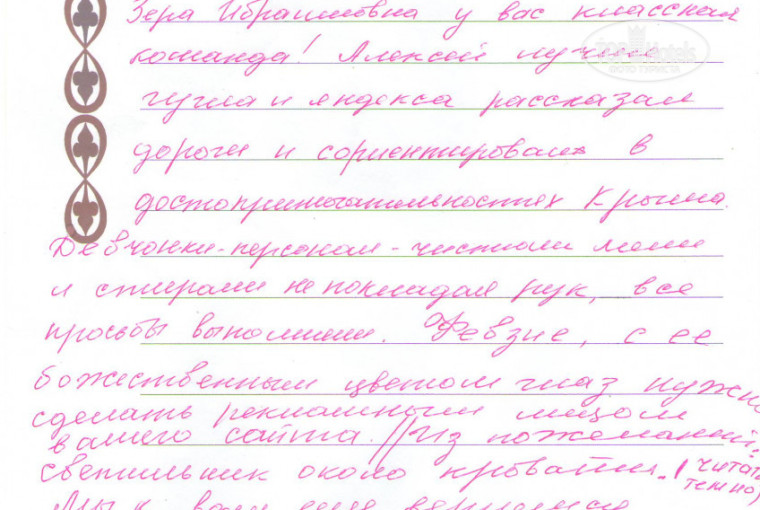 Зера Ибрагимовна у вас классная
команда! Алексей лучше
гугла и яндекса рассказал
дороги и сориентировал в
достопримечательностях Крыма.
Девчонки-персонал-чистили мыли
и стирали не покладая рук, все
просьбы выполнили. Февзие, с ее
божественным цветом глаз нужно
сделать рекламным лицом
вашего сайта. // Из пожеланий:
светильник около кровати. (читать
темно)
Мы к вам еще вернемся